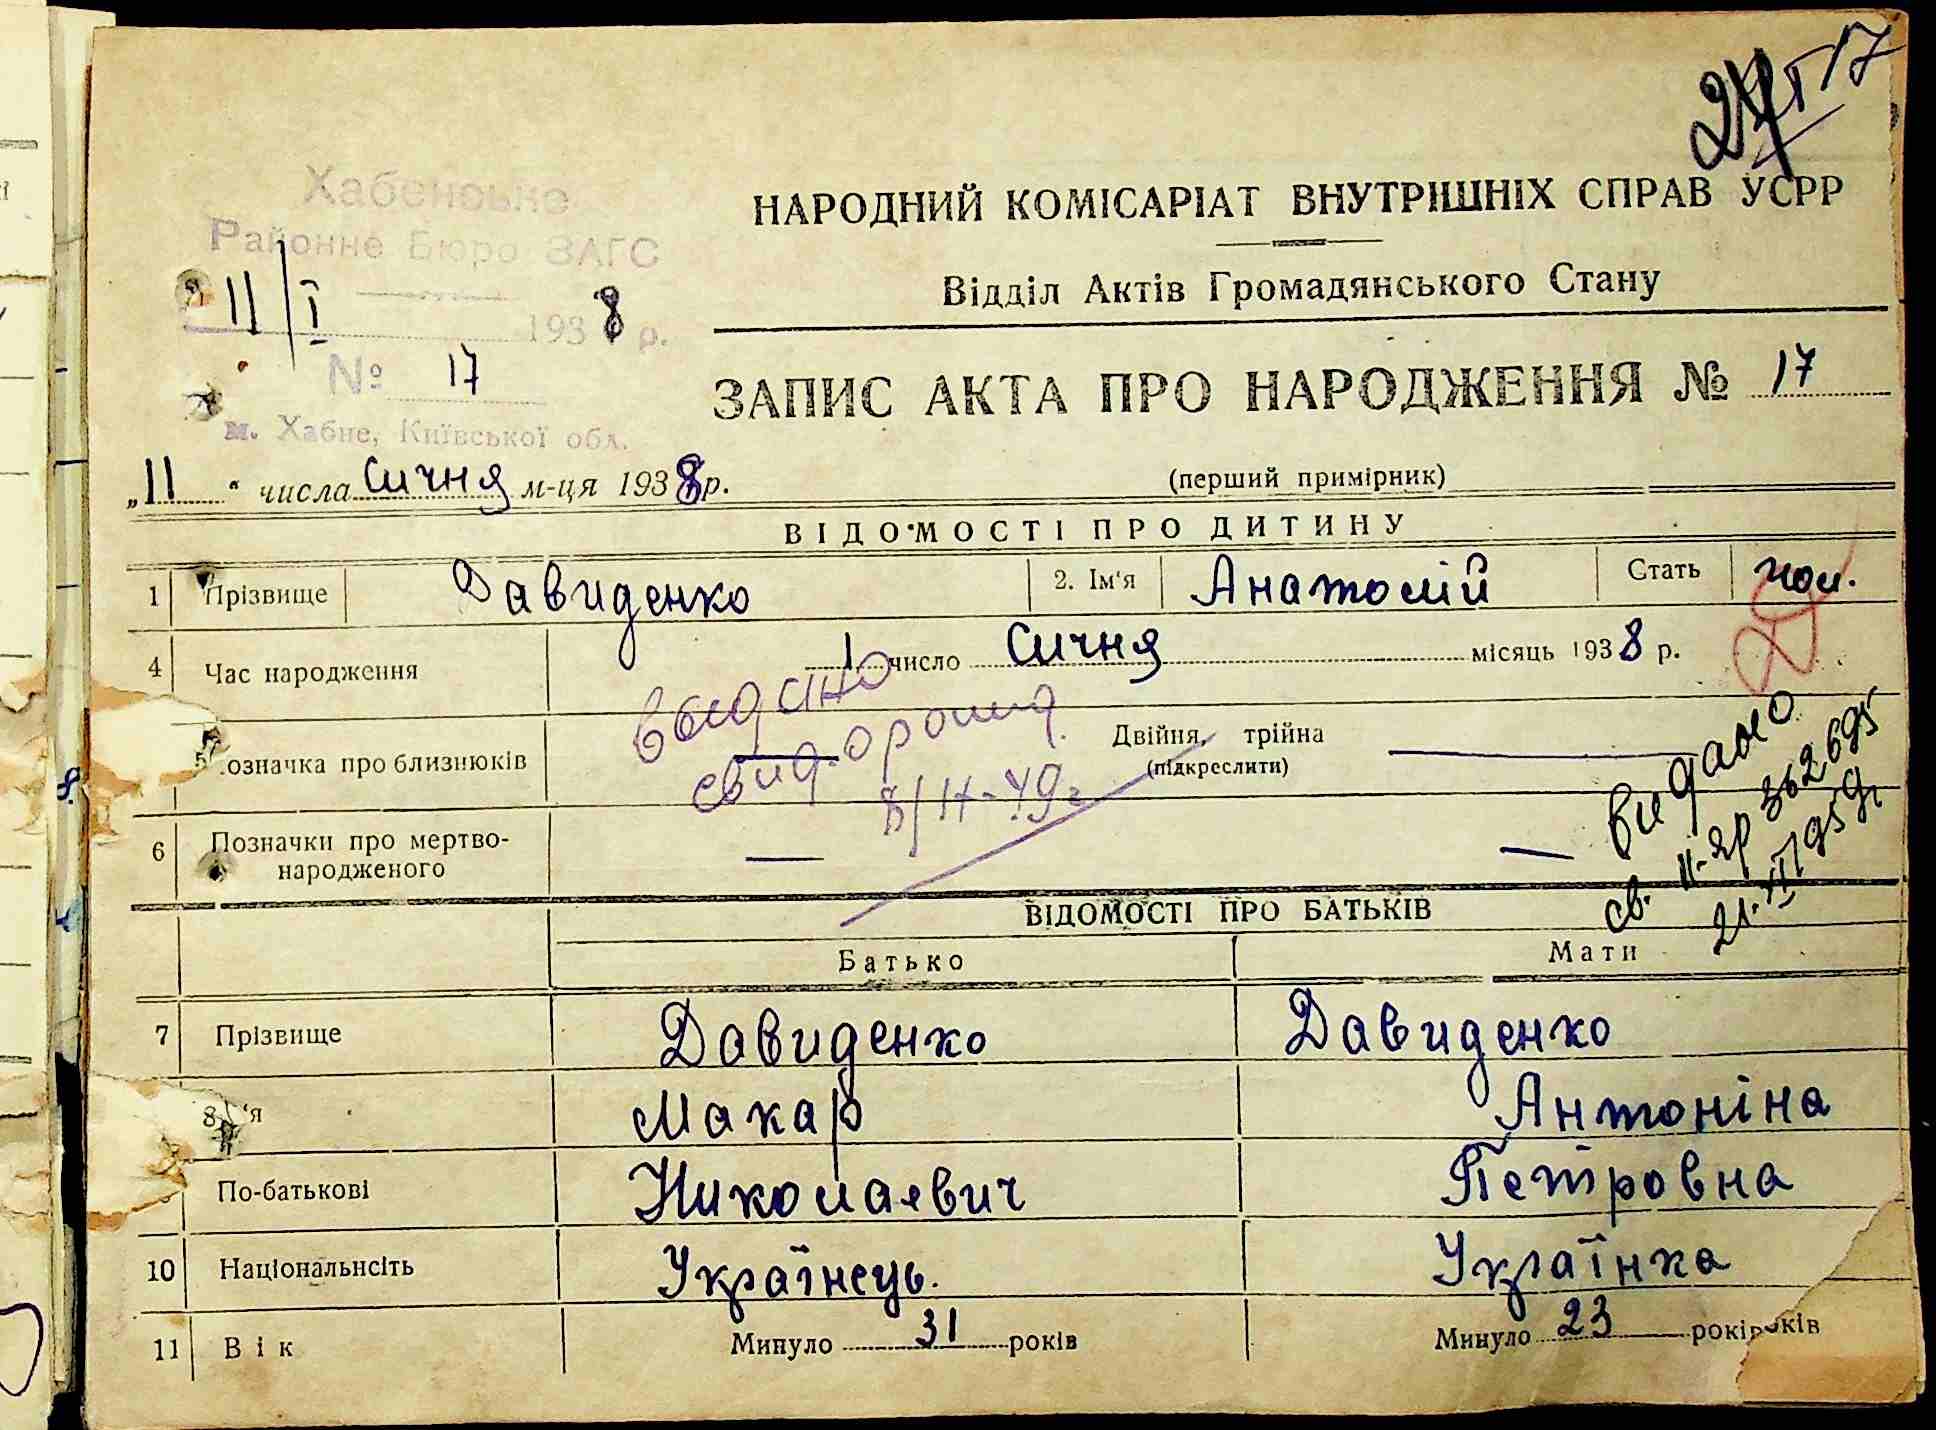 17
НАРОДНИЙ КОМІСАРІАТ ВНУТРІШНІХ СПРАВ УСРР
Відділ Актів Громадянського Стану
Хабенське
Районне Бюро ЗАГС
11/І 1938 р.
№ 17
м. Хабне, Київської обл.
ЗАПИС АКТА ПРО НАРОДЖЕННЯ № 17
(перший примірник)
„11“ числа Січня м-ця 1938 р.
ВІДОМОСТІ ПРО ДИТИНУ
1 Прізвище Давиденко 2. Ім'я Анатолій Стать чол.
4 Час народження 1 число Січня місяць 1938 р.
5 Позначка про близнюків — Двійня, трійна —
(підкреслити)
выдано
свид. о рожд.
видано
св. 362695
6 Позначки про мертво-
народженого — —
ВІДОМОСТІ ПРО БАТЬКІВ
Батько Мати
7 Прізвище Давиденко Давиденко
8 'я Макар Антоніна
По-батькові Николаевич Петровна
10 Національнсіть Українець. Українка
11 Вік Минуло 31 років Минуло 23 років